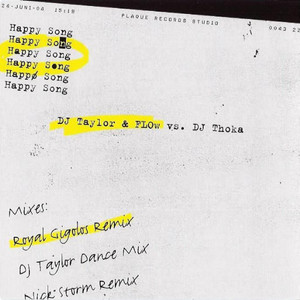 24-JUNI-04 15:19 PLAQUE RECORDS STUDIO 0043 22
Happy Song
Happy Song
Happy Song
Happy Song
Happy Song
Happy Song
DJ Taylor & FLOw vs. DJ Thoka
Mixes:
Royal Gigolos Remix
DJ Taylor Dance Mix
Nick Storm Remix